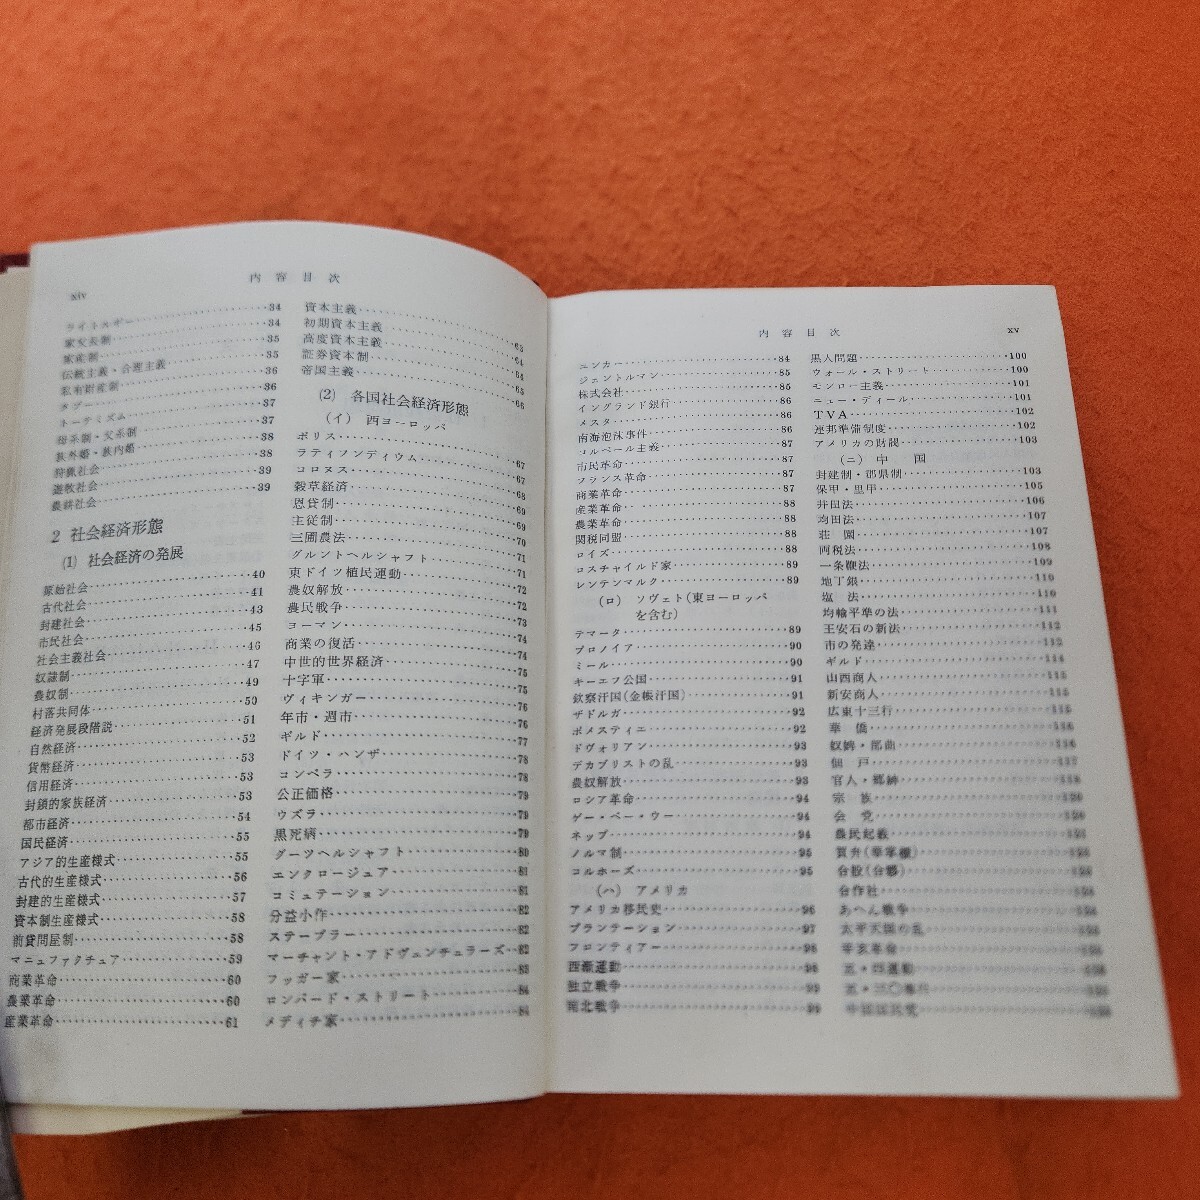 xiv
内容目次
ライトゥルギー 34
家父長制 34
家産制 35
伝統主義・合理主義 35
私有財産制 36
タブー 36
トーテミズム 37
母系制・父系制 37
族外婚・族内婚 38
狩猟社会 38
遊牧社会 39
農耕社会 39
2 社会経済形態
(1) 社会経済の発展
原始社会 40
古代社会 41
封建社会 43
市民社会 45
社会主義社会 46
奴隷制 47
農奴制 49
村落共同体 50
経済発展段階説 51
自然経済 52
貨幣経済 53
信用経済 53
封鎖的家族経済 53
都市経済 54
国民経済 55
アジア的生産様式 55
古代的生産様式 56
封建的生産様式 57
資本制生産様式 58
前貸問屋制 58
マニュファクチュア 59
商業革命 60
農業革命 60
産業革命 61
資本主義
初期資本主義 63
高度資本主義 64
証券資本制 65
帝国主義 66
(2) 各国社会経済形態
(イ) 西ヨーロッパ
ポリス 67
ラティフンディウム 67
コロヌス 68
穀草経済 68
恩貸制 69
主従制 69
三圃農法 70
グルントヘルシャフト 71
東ドイツ植民運動 71
農奴解放 72
農民戦争 72
ヨーマン 73
商業の復活 74
中世的世界経済 74
十字軍 75
ヴィキンガー 75
年市・週市 76
ギルド 76
ドイツ・ハンザ 77
コンペラ 78
公正価格 78
ウズラ 79
黒死病 79
グーツヘルシャフト 79
エンクロージュア 80
コミュテーション 81
分益小作 81
ステープラー 82
マーチャント・アドヴェンチュラーズ 82
フッガー家 83
ロンバード・ストリート 84
メディチ家 84
内容目次
xv
ユンカー 84
ジェントルマン 85
株式会社 85
イングランド銀行 86
メスタ 86
南海泡沫事件 86
コルベール主義 87
市民革命 87
フランス革命 87
商業革命 87
産業革命 88
農業革命 88
関税同盟 88
ロイズ 88
ロスチャイルド家 89
レンテンマルク 89
(ロ) ソヴェト(東ヨーロッパ
を含む)
テマータ 89
プロノイア 90
ミール 90
キーエフ公国 91
欽察汗国(金帳汗国) 91
ザドルガ 92
ポメスティエ 92
ドヴォリアン 93
デカブリストの乱 93
農奴解放 93
ロシア革命 94
ゲー・ペー・ウー 94
ネップ 94
ノルマ制 95
コルホーズ 95
(ハ) アメリカ
アメリカ移民史 96
プランテーション 97
フロンティアー 98
西漸運動 98
独立戦争 99
南北戦争 99
黒人問題 100
ウォール・ストリート 100
モンロー主義 101
ニュー・ディール 101
TVA 102
連邦準備制度 102
アメリカの財閥 103
(ニ) 中国
封建制・郡県制 103
保甲・里甲 105
井田法 106
均田法 107
荘園 107
両税法 108
一条鞭法 109
地丁銀 110
塩法 110
均輸平準の法 111
王安石の新法 112
市の発達 112
ギルド 114
山西商人 115
新安商人 115
広東十三行 115
華僑 116
奴婢・部曲 116
佃戸 117
官人・郷紳 118
宗族 120
会党 120
農民起義 121
買弁(華掌櫃)
合股(合夥)
合作社
あへん戦争
太平天国の乱
辛亥革命
五・四運動
五・三〇事件